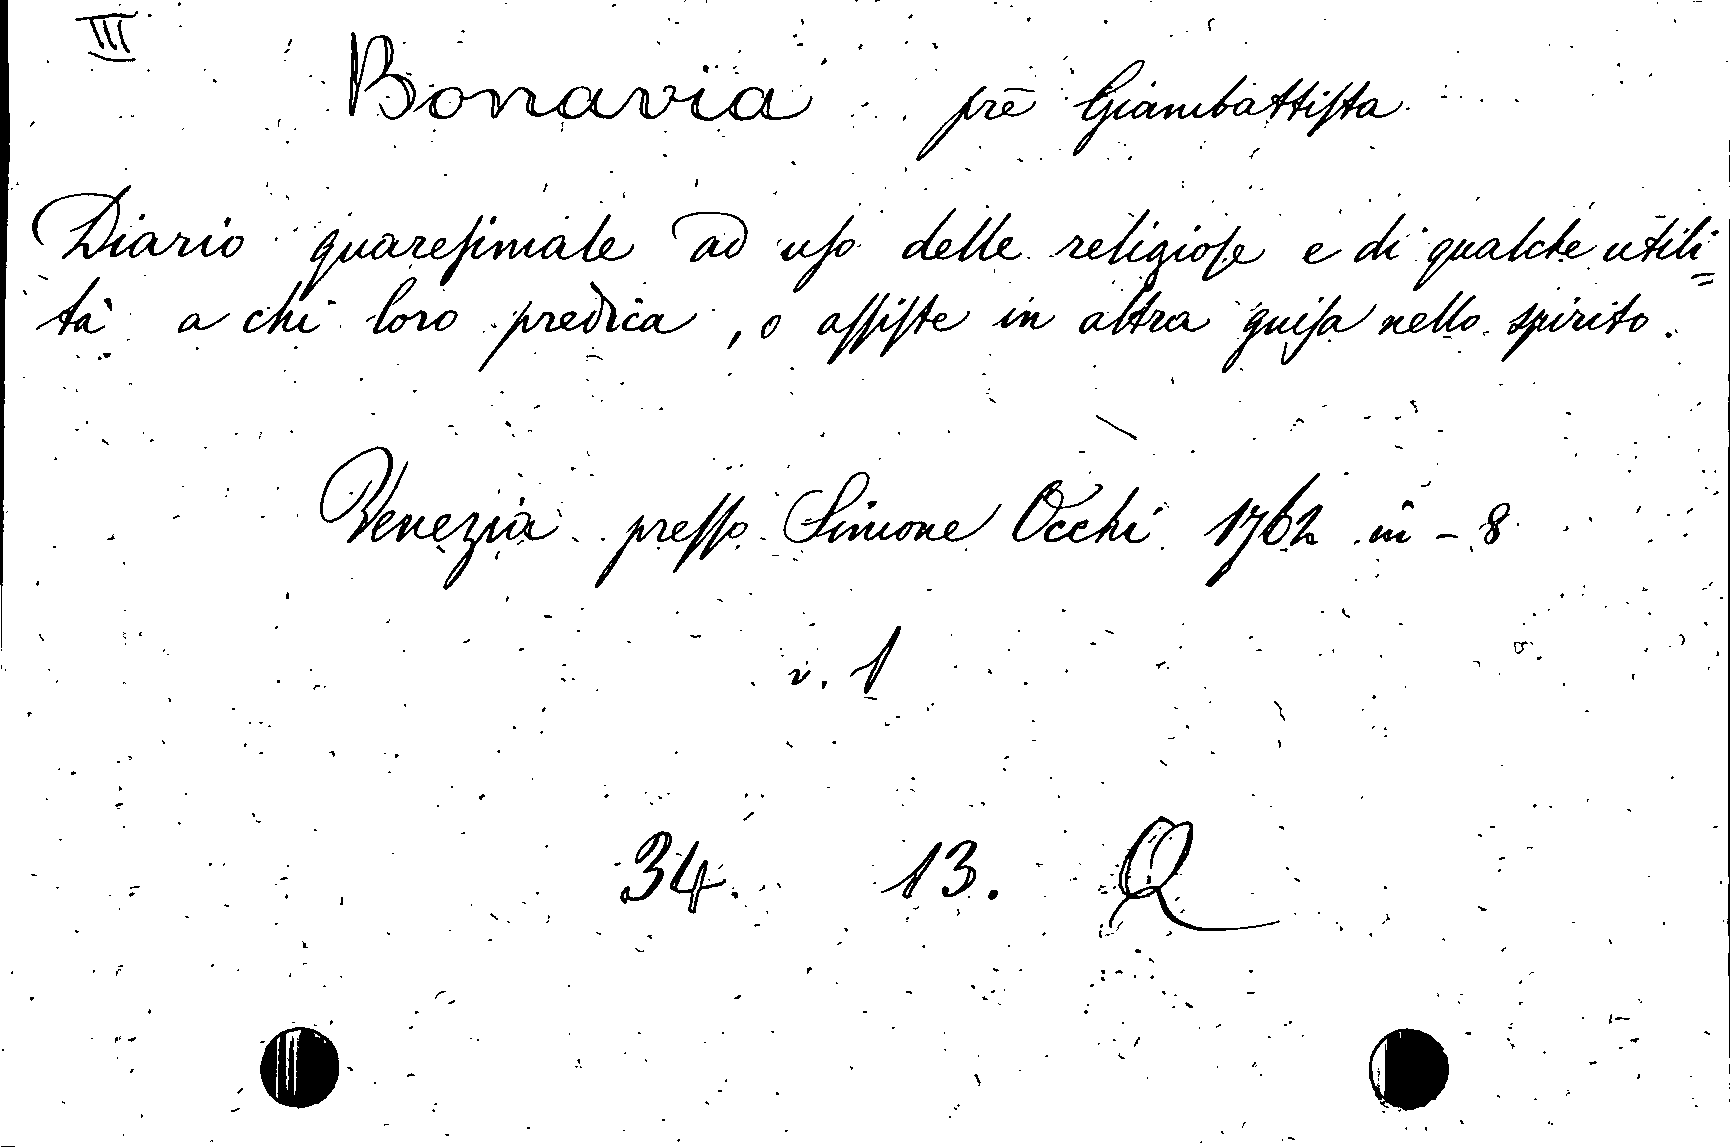 III
Bonavia prē Giambattiſta
Diario quareſimale ad uſo delle religioſe e di qualche utili=
tà a chi loro predica, o aſſiſte in altra guiſa nello spirito.
Venezia preſſo Simone Occhi 1762 in-8
v. 1
34. 13. Q